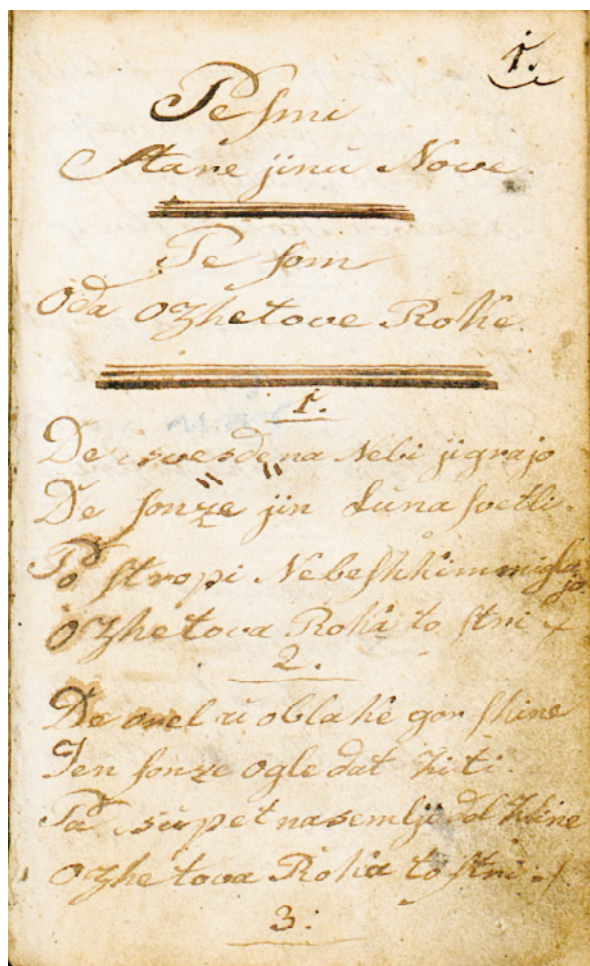 1.
Pesmi
Stare jinu Nowe.
Pe som
Oda Ozhetove Rokê.
1.
De swesdena Nebi jigrajo
De sonze jin Luna svetli.
Po stropi Nebeshkim migla
jo
Ozhetova Roka to stri
2.
De orel u oblakê gor shine
Jen sonze ogledat hiti.
Pa supet nasemljo dol shine
Ozhetova Roka to stri
3.